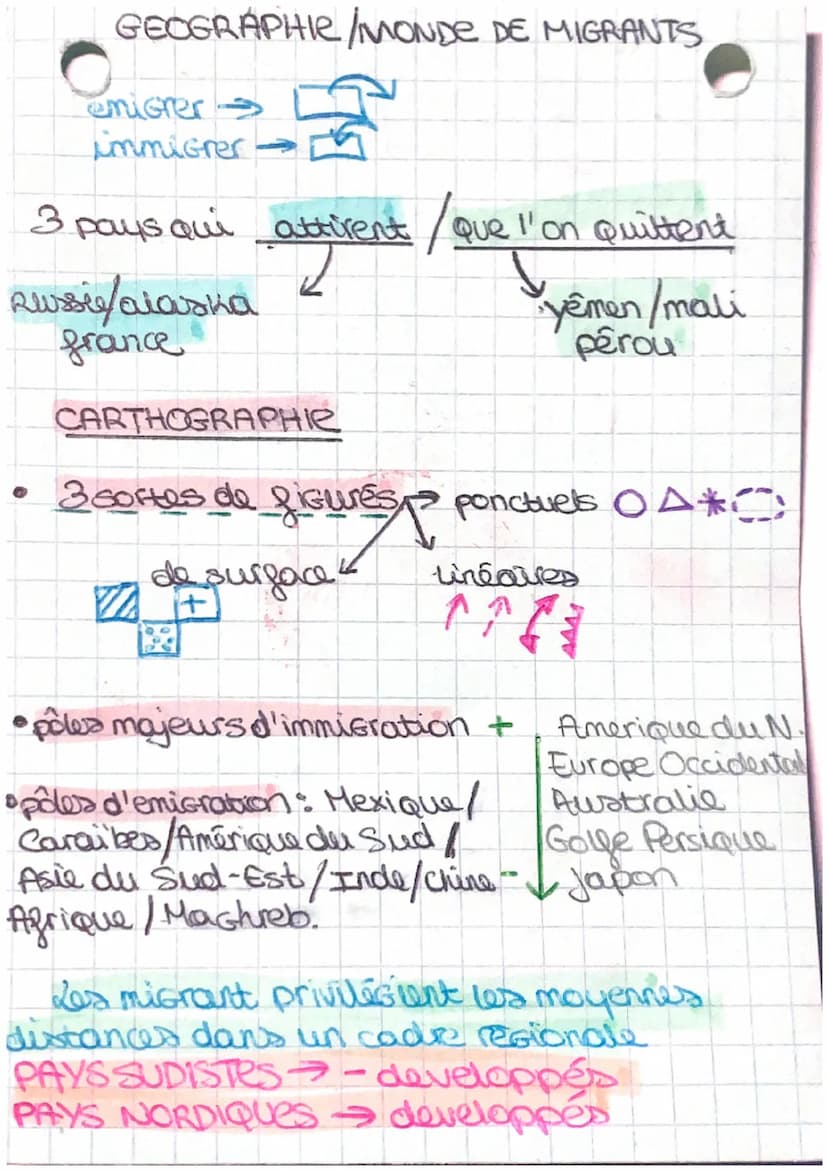 GEOGRAPHIE/MONDE DE MIGRANTS
emigrer →
immigrer →
3 pays qui attirent / que l'on quittent
Russie/alaska
france
yémen/mali
pérou
CARTHOGRAPHIE
• 3 sortes de figurés → ponctuels
de surface
linéaires
• pôles majeurs d'immigration + Amerique du N.
Europe Occidental
• pôles d'emigration : Mexique/ Australie
Caraïbes/Amérique du Sud / Golfe Persique
Asie du Sud-Est/Inde/Chine - Japon
Afrique/Maghreb.
Les migrant privilégient les moyennes
distances dans un cadre régionale
PAYS SUDISTES → - developpés
PAYS NORDIQUES → developpés